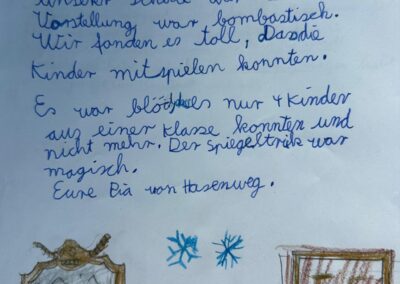 unserer Schule war
Vorstellung war bombastisch.
Wir fanden es toll, Dassdie
Kinder mitspielen konnten.
Es war blöd es nur 4 Kinder
aus einer Klasse konnten und
nicht mehr. Der Spiegeltrik war
magisch.
Eure Bia von Hasenweg.